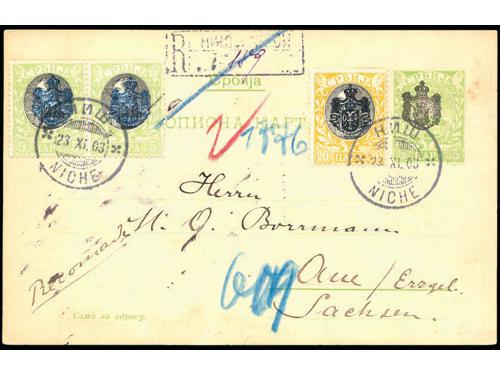 R.
Србија
СРБИЈА
ОПИСНА КАРТ
5 5 20 ПАРА 5
НИШ
23 XI. 03
NICHE
НИШ
23 XI. 03
NICHE
1376
Herrn
M. G. Borrmann
Recomandé
Aue / Erzgeb.
Sachsen.
609
Само за адресу.